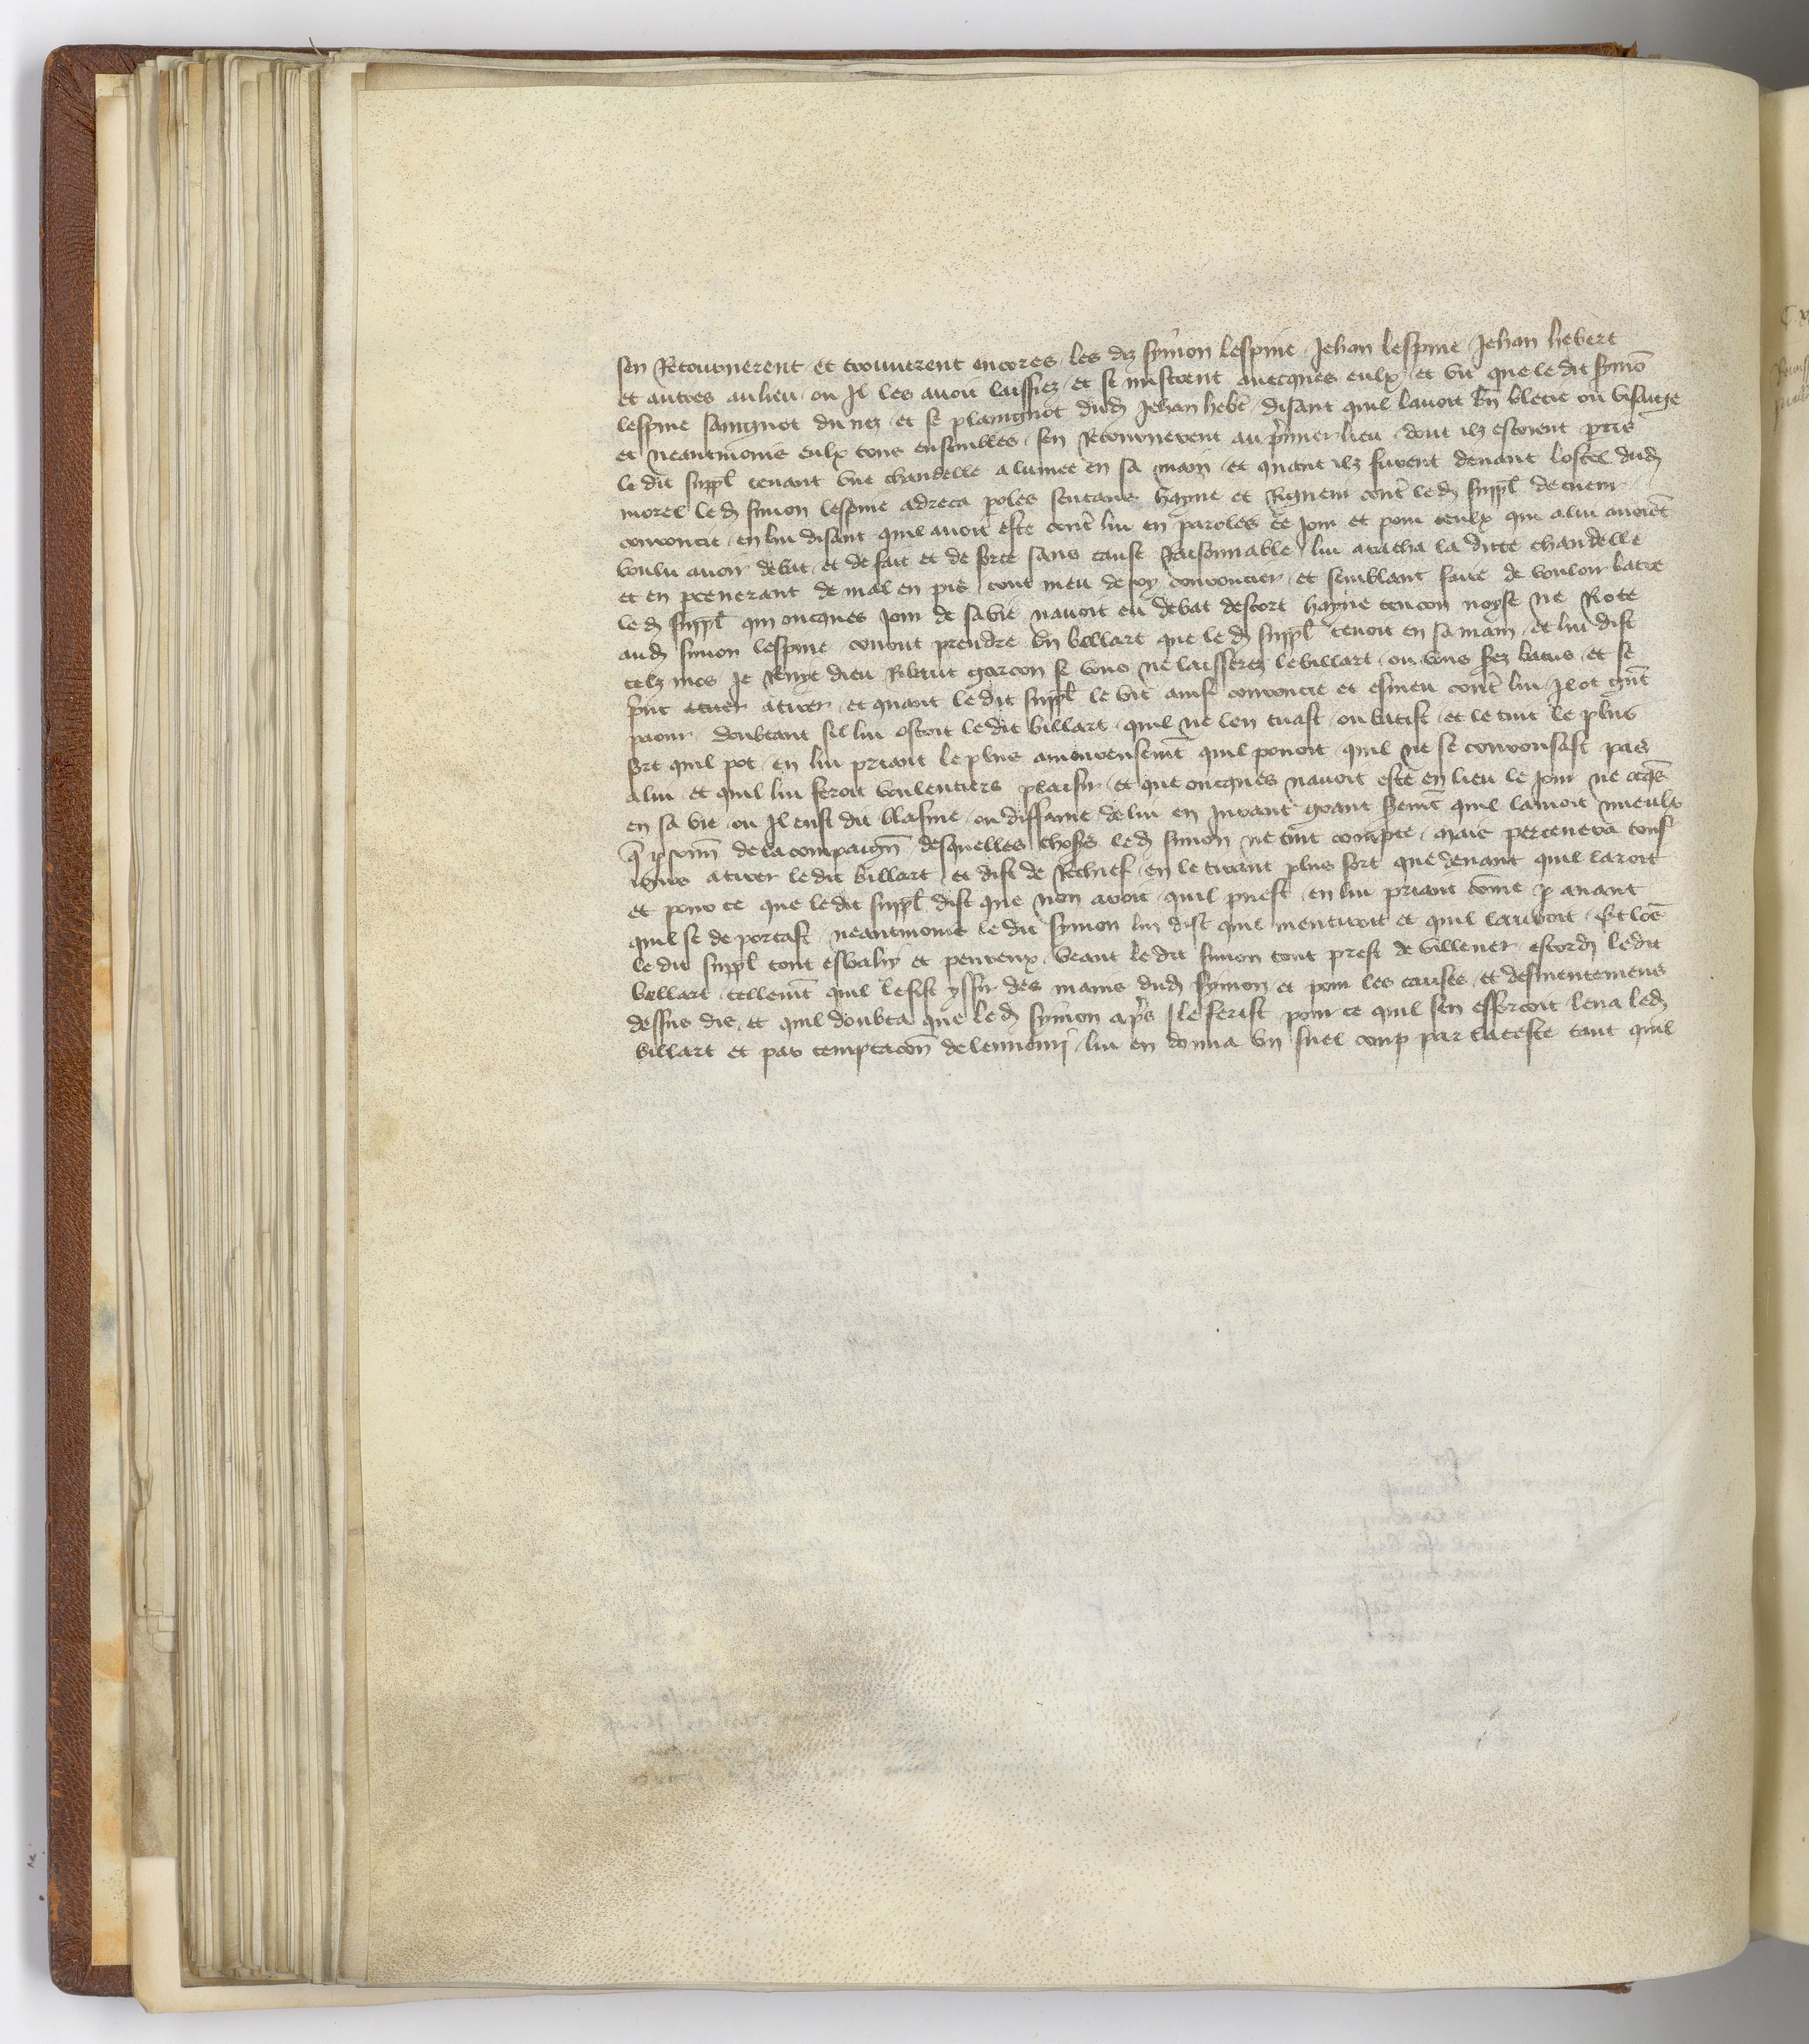 sen Retournerent et trouuerent encores les diz symon lespine Jehan lespine Jehan hebert
et autres au lieu ou Il les auoit laissiez et se mistrent auecques eulx et vit que le dit symō
lespine saingnot du nez et se plaingnot dud Jehan hebt disant quil lauoit bn blecie ou visaige
et neantmoins eulx tous ensembles sen Retournerent au pmier lieu dont ilz estoient ptis
le dit suppl tenant vne chandelle alumee en sa main et quant ilz furent deuant lostel dud
morel led simon lespine adreca poles sentans hayne et Rigueur cont led suppl de cuer
courroucie en lui disant quil auoit este cont lui en paroles ce Jour et pour ceulx qui a lui auoiēt
voulu auoir debat et de fait et de force sans cause Raisonnable lui aracha la dicte chandelle
et en perseuerant de mal en pis tout meu de soy courroucier et semblant faire de vouloir batre
led suppl qui oncques Jour de sa vie nauoit eu debat descort hayne tencon noyse ne Rote
aud simon lespine couout prendre vn billart que led suppl tenoit en sa main et lui dist
telz mos Je Renye dieu Ribaut garcon se vous ne laisserez le billart ou vous sez batus et se
prit atirer et quant le dit suppl le vit ainsi courroucie et esmeu cont lui Il ot gnt
paour doubtant sil lui ostoit le dit billart quil ne len tuast ou batist et le tint le plus
fort quil pot en lui priant le plus amoureusemt quil pouoit quil ne se courousast pas
a lui et quil lui feroit voulentiers plaisir et que oncques nauoit este en lieu le Jour ne oncqs
en sa vie ou Il eust dit blasme ou diffame de lui en Jurant grant sermt quil lamoit mieulx
q psonn de la compaign desquelles choses led simon ne tint compte mais perseuera tous
iours a tirer le dit billart et dist de Rechief en le tirant plus fort que deuant quil laroit
et pour ce que le dit suppl dist que non aroit quil puest en lui priant cōme p auant
quil se deportast neantmoins le dit symon lui dist quil mentiroit et quil lauroit Et lors
le dit suppl tout esbahy et peureux veant le dit simon tout prest de villener escordi ledit
billart tellemt quil le fist yssir des mains dud symon et pour les causes et desmentemens
dessus diz et quil doubta que led symon aps le ferist pour ce quil sen efforcoit leua led
billart et par temptacōn de lennemi lui en donna vn suel coup par la teste tant quil